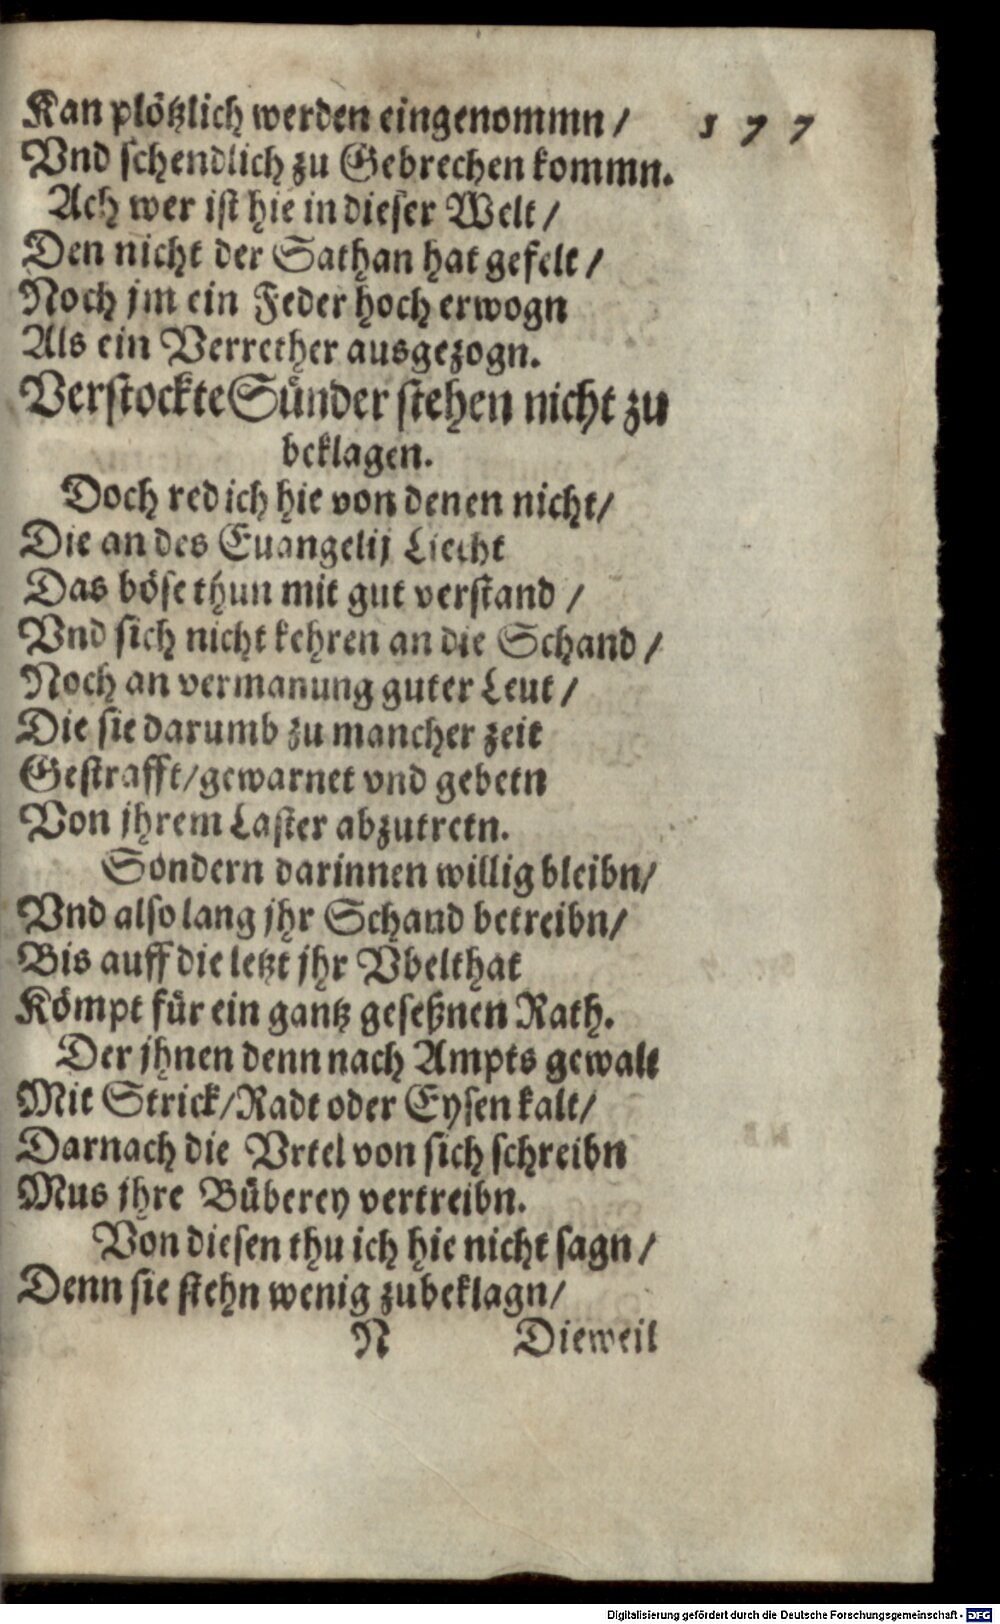 Kan plötzlich werden eingenommn / 177
Vnd schendlich zu Gebrechen kommn.
Ach wer ist hie in dieser Welt /
Den nicht der Sathan hat gefelt /
Noch jm ein Feder hoch erwogn
Als ein Verrether ausgezogn.
Verstockte Sünder stehen nicht zu
beklagen.
Doch red ich hie von denen nicht /
Die an des Euangelij Liecht
Das böse thun mit gut verstand /
Vnd sich nicht kehren an die Schand /
Noch an vermanung guter Leut /
Die sie darumb zu mancher zeit
Gestrafft / gewarnet vnd gebetn
Von jhrem Laster abzutretn.
Sondern darinnen willig bleibn /
Vnd also lang jhr Schand betreibn /
Bis auff die letzt jhr Vbelthat
Kömpt für ein gantz geseßnen Rath.
Der jhnen denn nach Ampts gewalt
Mit Strick / Radt oder Eysen kalt /
Darnach die Vrtel von sich schreibn
Mus jhre Büberey vertreibn.
Von diesen thu ich hie nicht sagn /
Denn sie stehn wenig zubeklagn /
N Dieweil
Digitalisierung gefördert durch die Deutsche Forschungsgemeinschaft - DFG